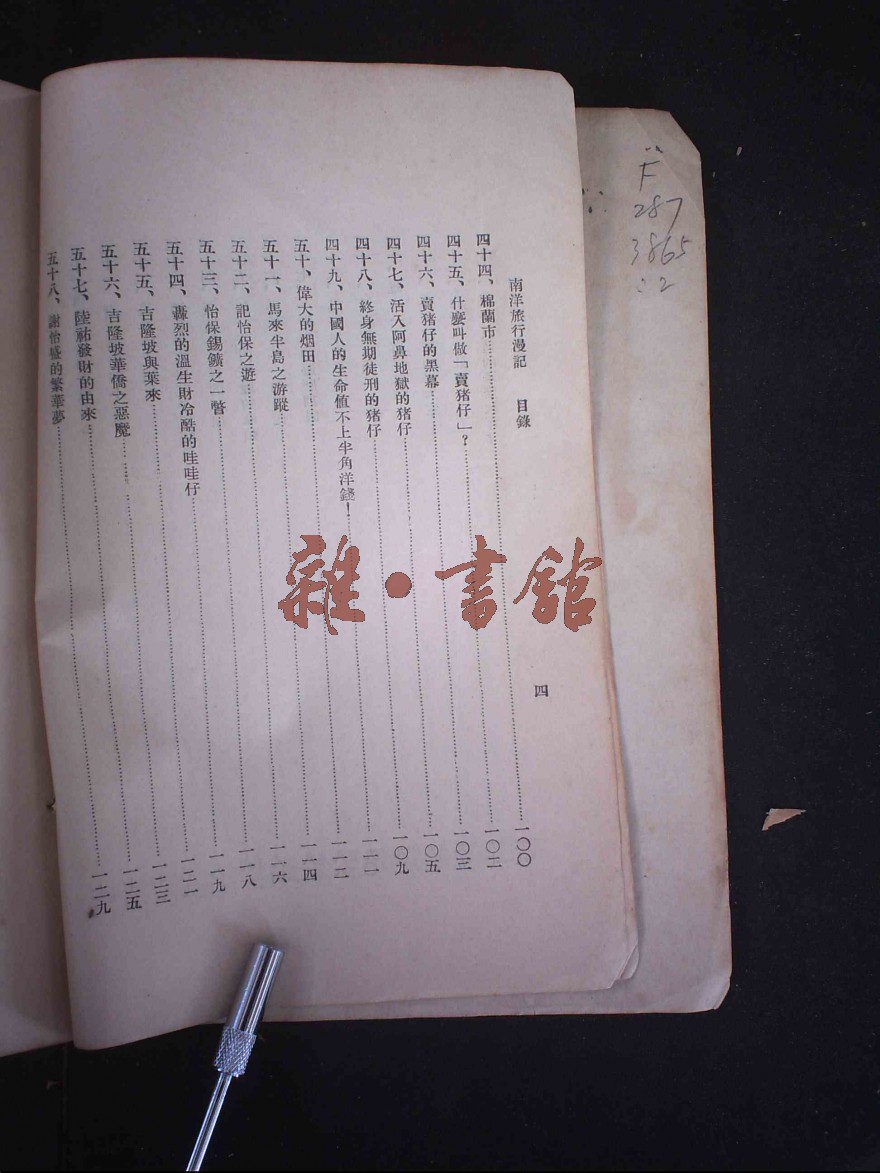 南洋旅行漫記　目錄　四
四十四、棉蘭市……一〇〇
四十五、什麼叫做「賣猪仔」？……一〇二
四十六、賣猪仔的黑幕……一〇三
四十七、活入阿鼻地獄的猪仔……一〇五
四十八、終身無期徒刑的猪仔……一〇九
四十九、中國人的生命値不上半角洋錢！……一一一
五十、偉大的烟田……一一二
五十一、馬來半島之游蹤……一一四
五十二、記怡保之遊……一一六
五十三、怡保錫鑛之一瞥……一一八
五十四、轟烈的溫生財冷酷的哇哇仔……一一九
五十五、吉隆坡與葉來……一二一
五十六、吉隆坡華僑之惡魔……一二三
五十七、陸祐發財的由來……一二五
五十八、謝怡盛的繁華夢……一二九
F
287
3865
:2
雜·書館